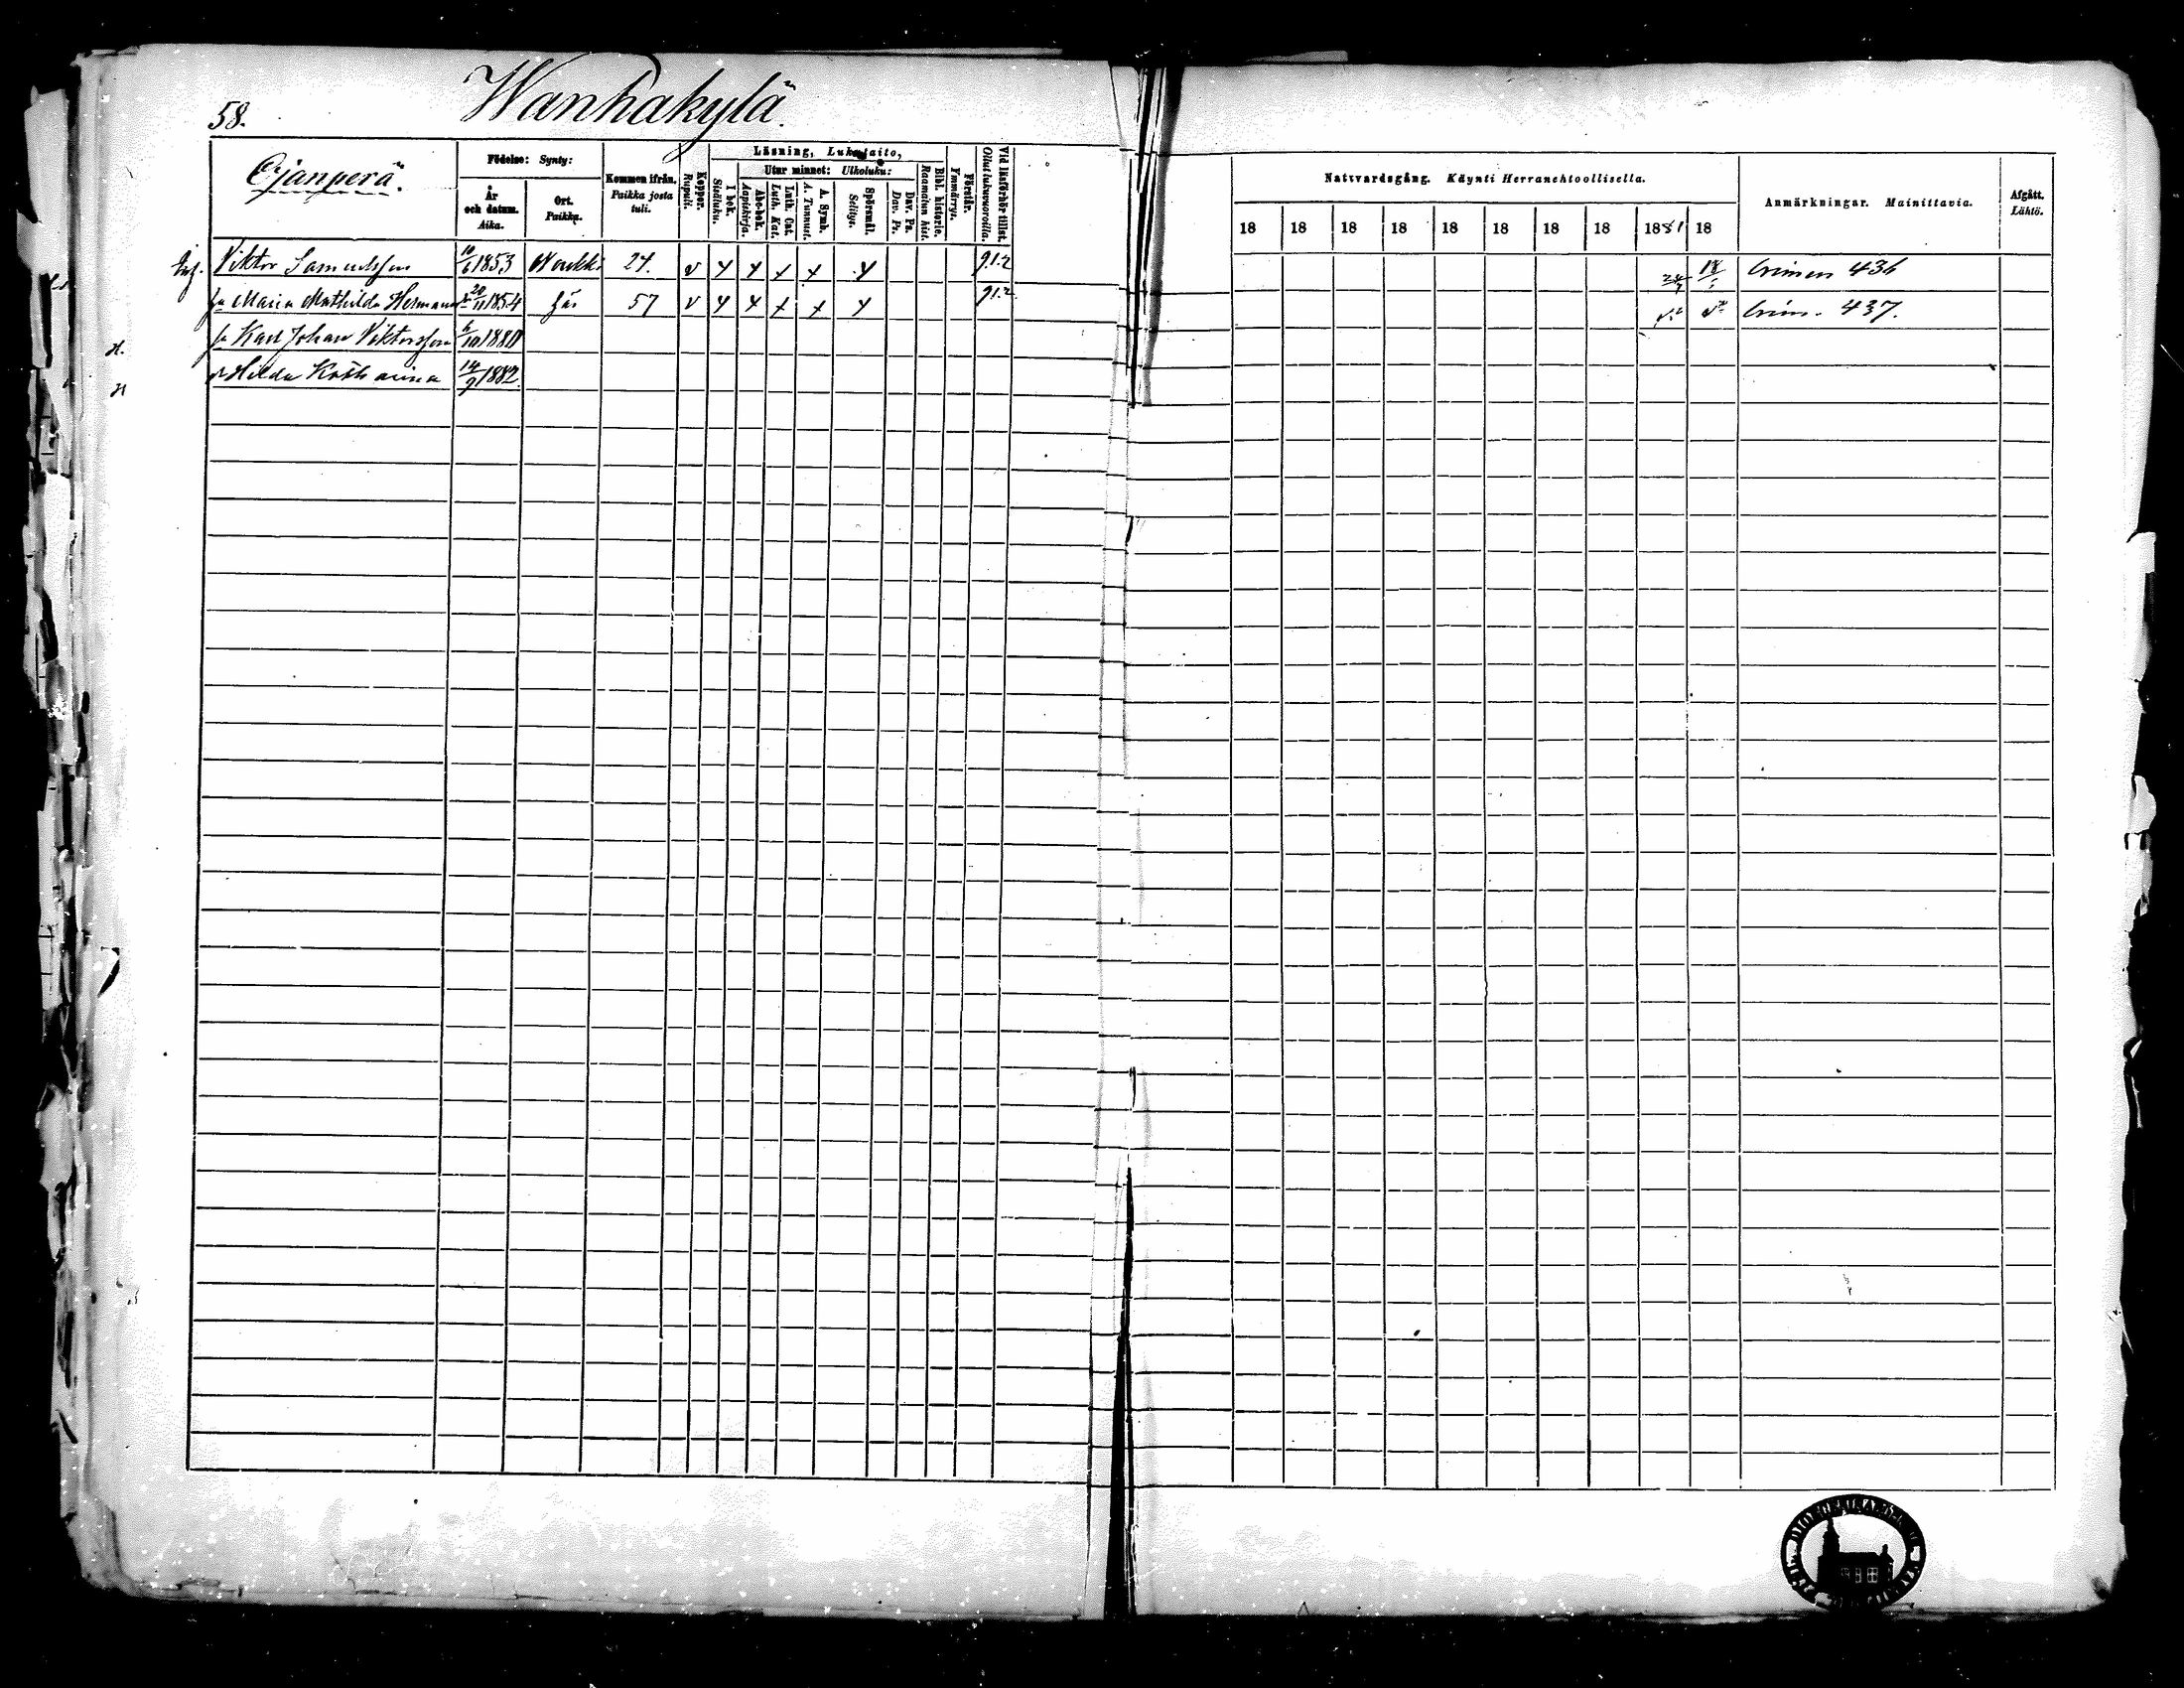 58.
Wanhakylä.
Ojanperä.
Födelse: Synty:
År och datum. Aika.
Ort. Paikka.
Kommen ifrån. Paikka josta tuli.
Koppor. Rupuli.
Läsning, Lukutaito,
I bok. Sisäluku.
Utur minnet: Ulkoluku:
Abc-bok. Aapiskirja.
Luth. Cat. Luth. Kat.
A. Symb. A. Tunnust.
Spörsmål. Selitys.
Dav. Ps. Dav. Ps.
Bibl. historie. Raamatun hist.
Förstår. Ymmärrys.
Vid läsförhör tillst. Ollut lukuvuoroilla.
Nattvardsgång. Käynti Herranehtoollisella.
18 18 18 18 18 18 18 18 1881 18
Anmärkningar. Mainittavia.
Afgått. Lähtö.
Viktor Samuelsson 10/6 1853 24. v 9.1.2 Crimen 436
Maria Mathilda Herman 20/11 1854 57 v 9.1.2 Crim. 437.
Karl Johan Viktorsson 6/10 1880
H.
Hilda 14/9 1882.
H